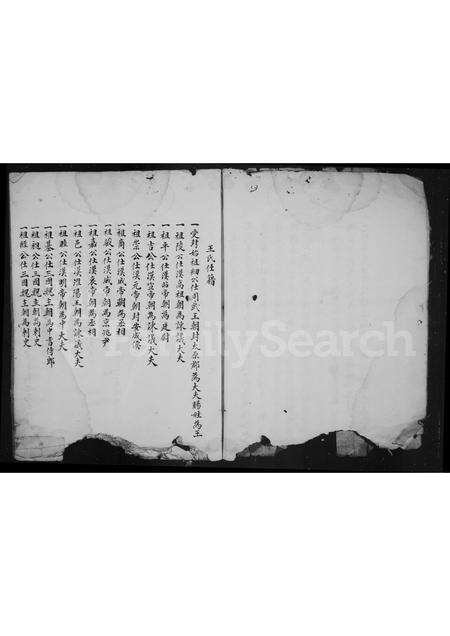 王氏仕籍
一受封始祖 公仕周武王朝封太原郡為大夫賜姓為王
一祖陵公仕漢高祖朝為諫議大夫
一祖平公仕漢昭帝朝為廷尉
一祖吉公仕漢宣帝朝為諫議大夫
一祖崇公仕漢元帝朝封安成侯
一祖商公仕漢成帝朝為丞相
一祖駿公仕漢成帝朝為京兆尹
一祖嘉公仕漢哀帝朝為丞相
一祖邑公仕漢淮陽王朝為諫議大夫
一祖 公仕漢明帝朝為中大夫
一祖基公仕三國魏主朝為中書侍郎
一祖 公仕三國魏主朝為刺史
一祖 公仕三國魏主朝為刺史
FamilySearch